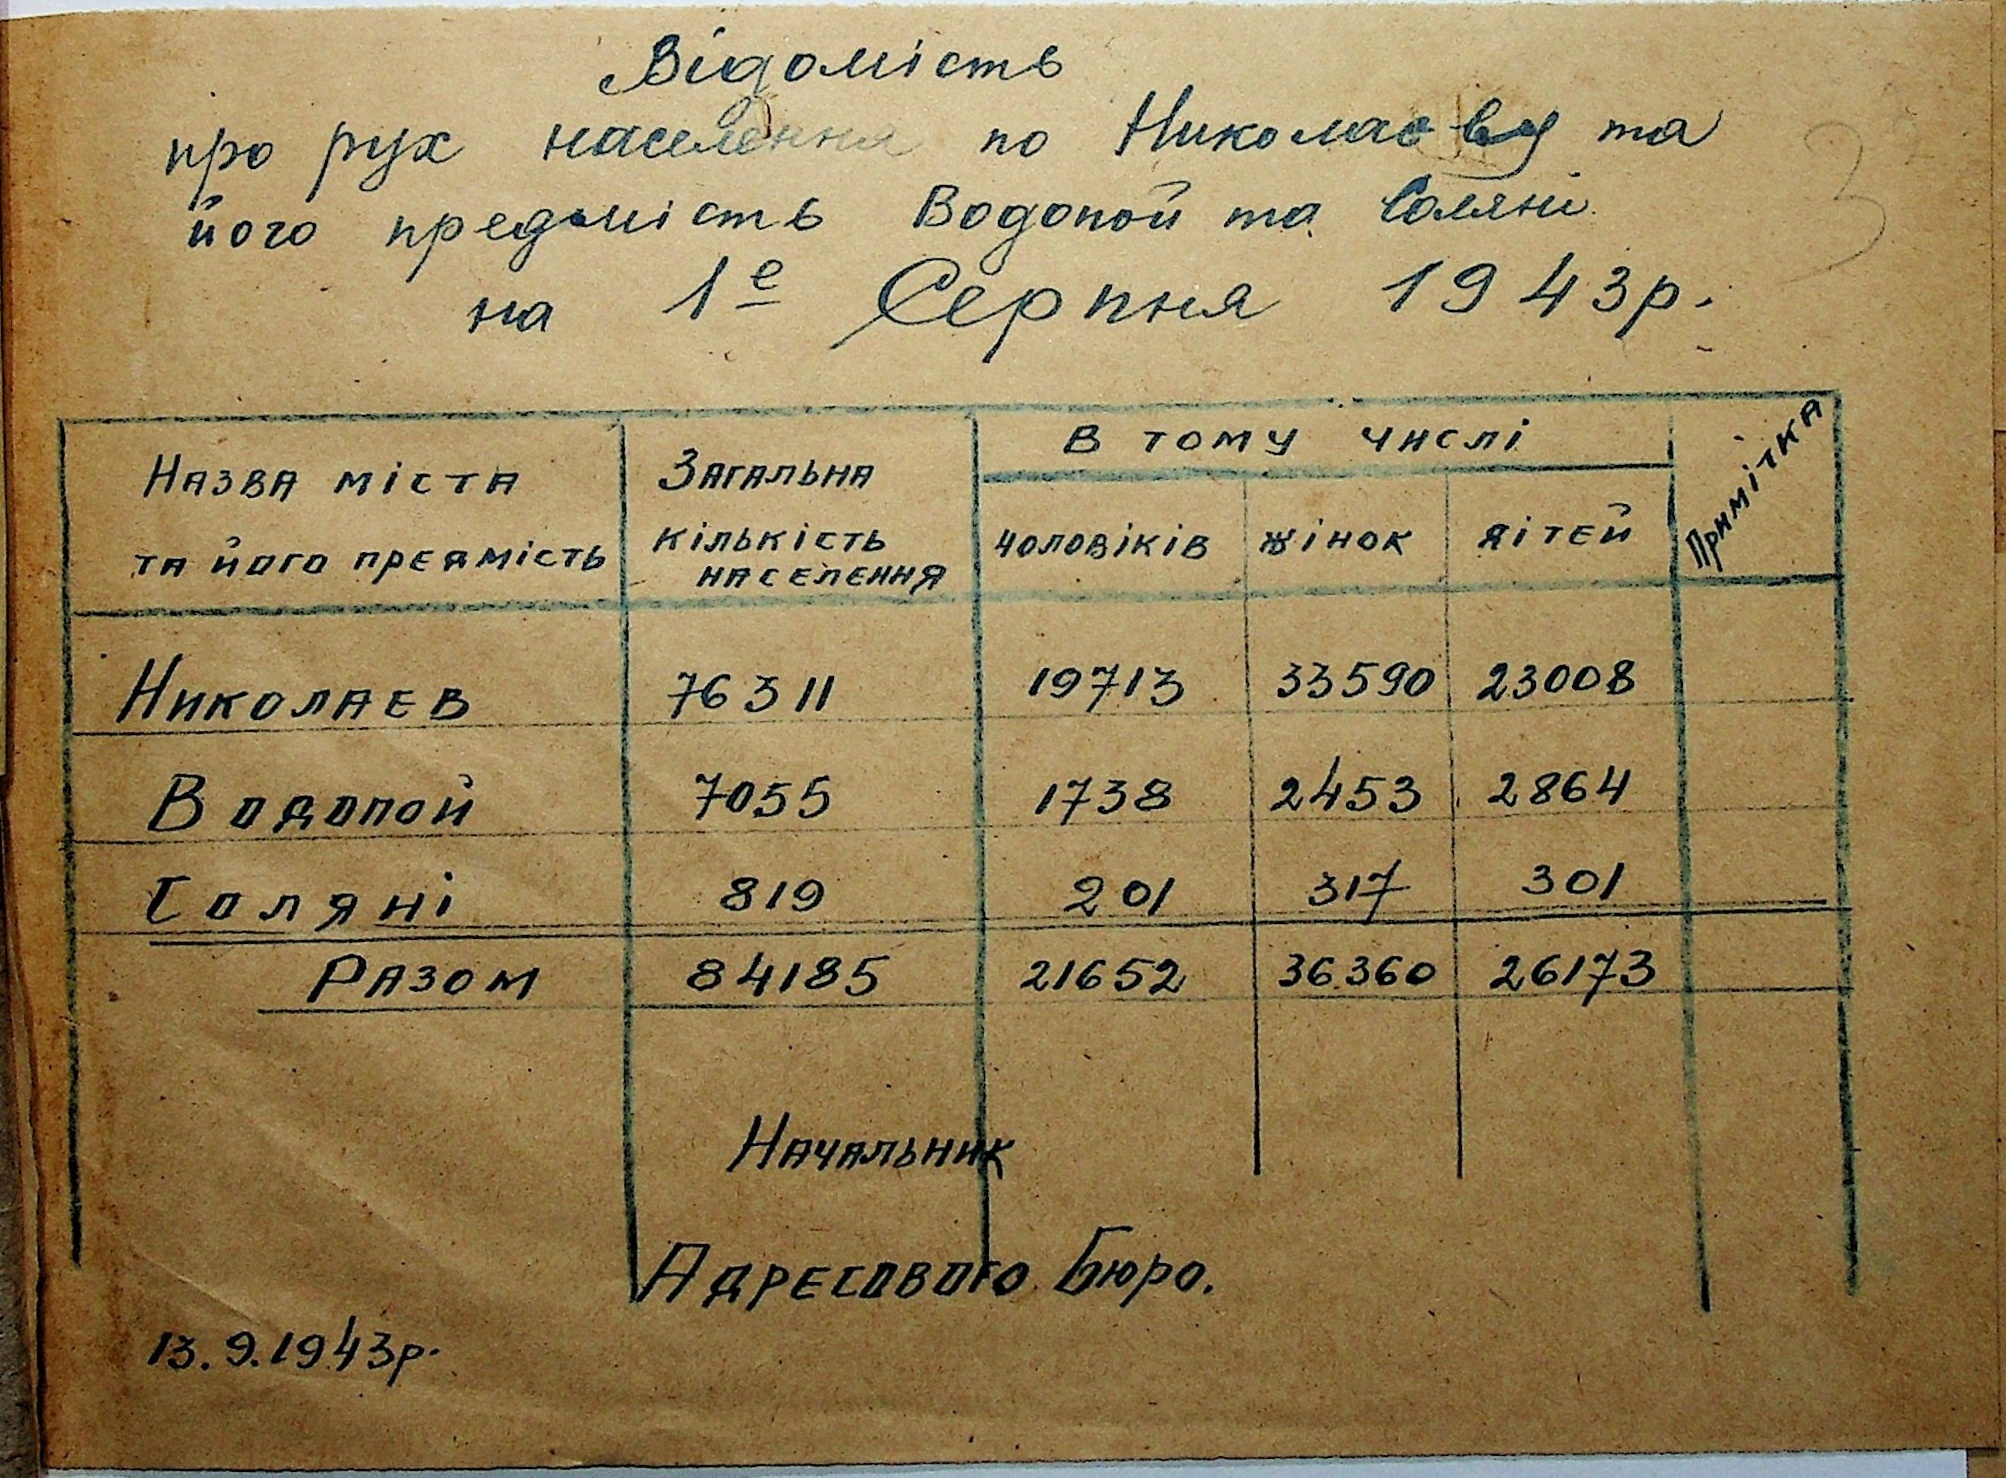 Відомість
про рух населення по Николаєву та
його предмість Водопой та Соляні.
на 1е Серпня 1943р.
3
Назва міста та його предмість
Загальна кількість населення
В тому числі
чоловіків жінок дітей
Примітка
Николаев 76311 19713 33590 23008
Водопой 7055 1738 2453 2864
Соляні 819 201 317 301
Разом 84185 21652 36360 26173
Начальник
Адресового Бюро.
13.9.1943р.